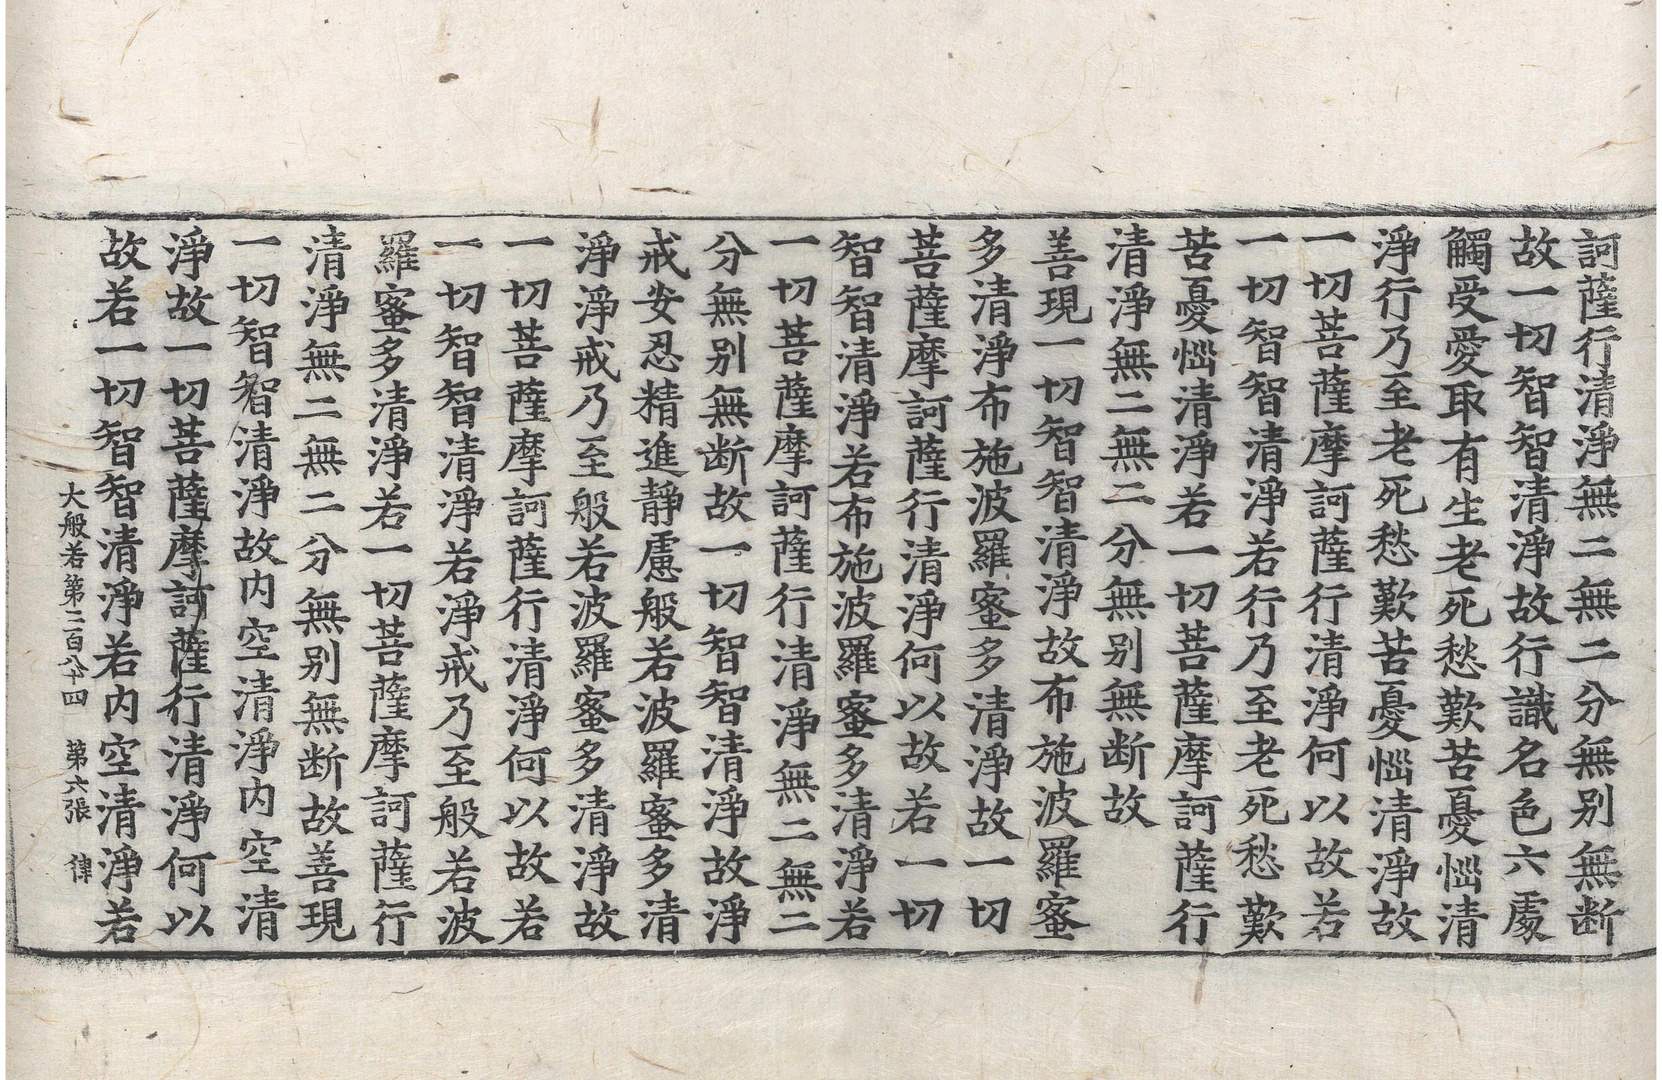 訶薩行清淨無二無二分無別無断
故一切智智清淨故行識名色六處
觸受愛取有生老死愁歎苦憂惱清
淨行乃至老死愁歎苦憂惱清淨故
一切菩薩摩訶薩行清淨何以故若
一切智智清淨若行乃至老死愁歎
苦憂惱清淨若一切菩薩摩訶薩行
清淨無二無二分無別無断故
善現一切智智清淨故布施波羅蜜
多清淨布施波羅蜜多清淨故一切
菩薩摩訶薩行清淨何以故若一切
智智清淨若布施波羅蜜多清淨若
一切菩薩摩訶薩行清淨無二無二
分無別無断故一切智智清淨故淨
戒安忍精進靜慮般若波羅蜜多清
淨淨戒乃至般若波羅蜜多清淨故
一切菩薩摩訶薩行清淨何以故若
一切智智清淨若淨戒乃至般若波
羅蜜多清淨若一切菩薩摩訶薩行
清淨無二無二分無別無断故善現
一切智智清淨故內空清淨內空清
淨故一切菩薩摩訶薩行清淨何以
故若一切智智清淨若內空清淨若
大般若第二百八十四 第六張 律